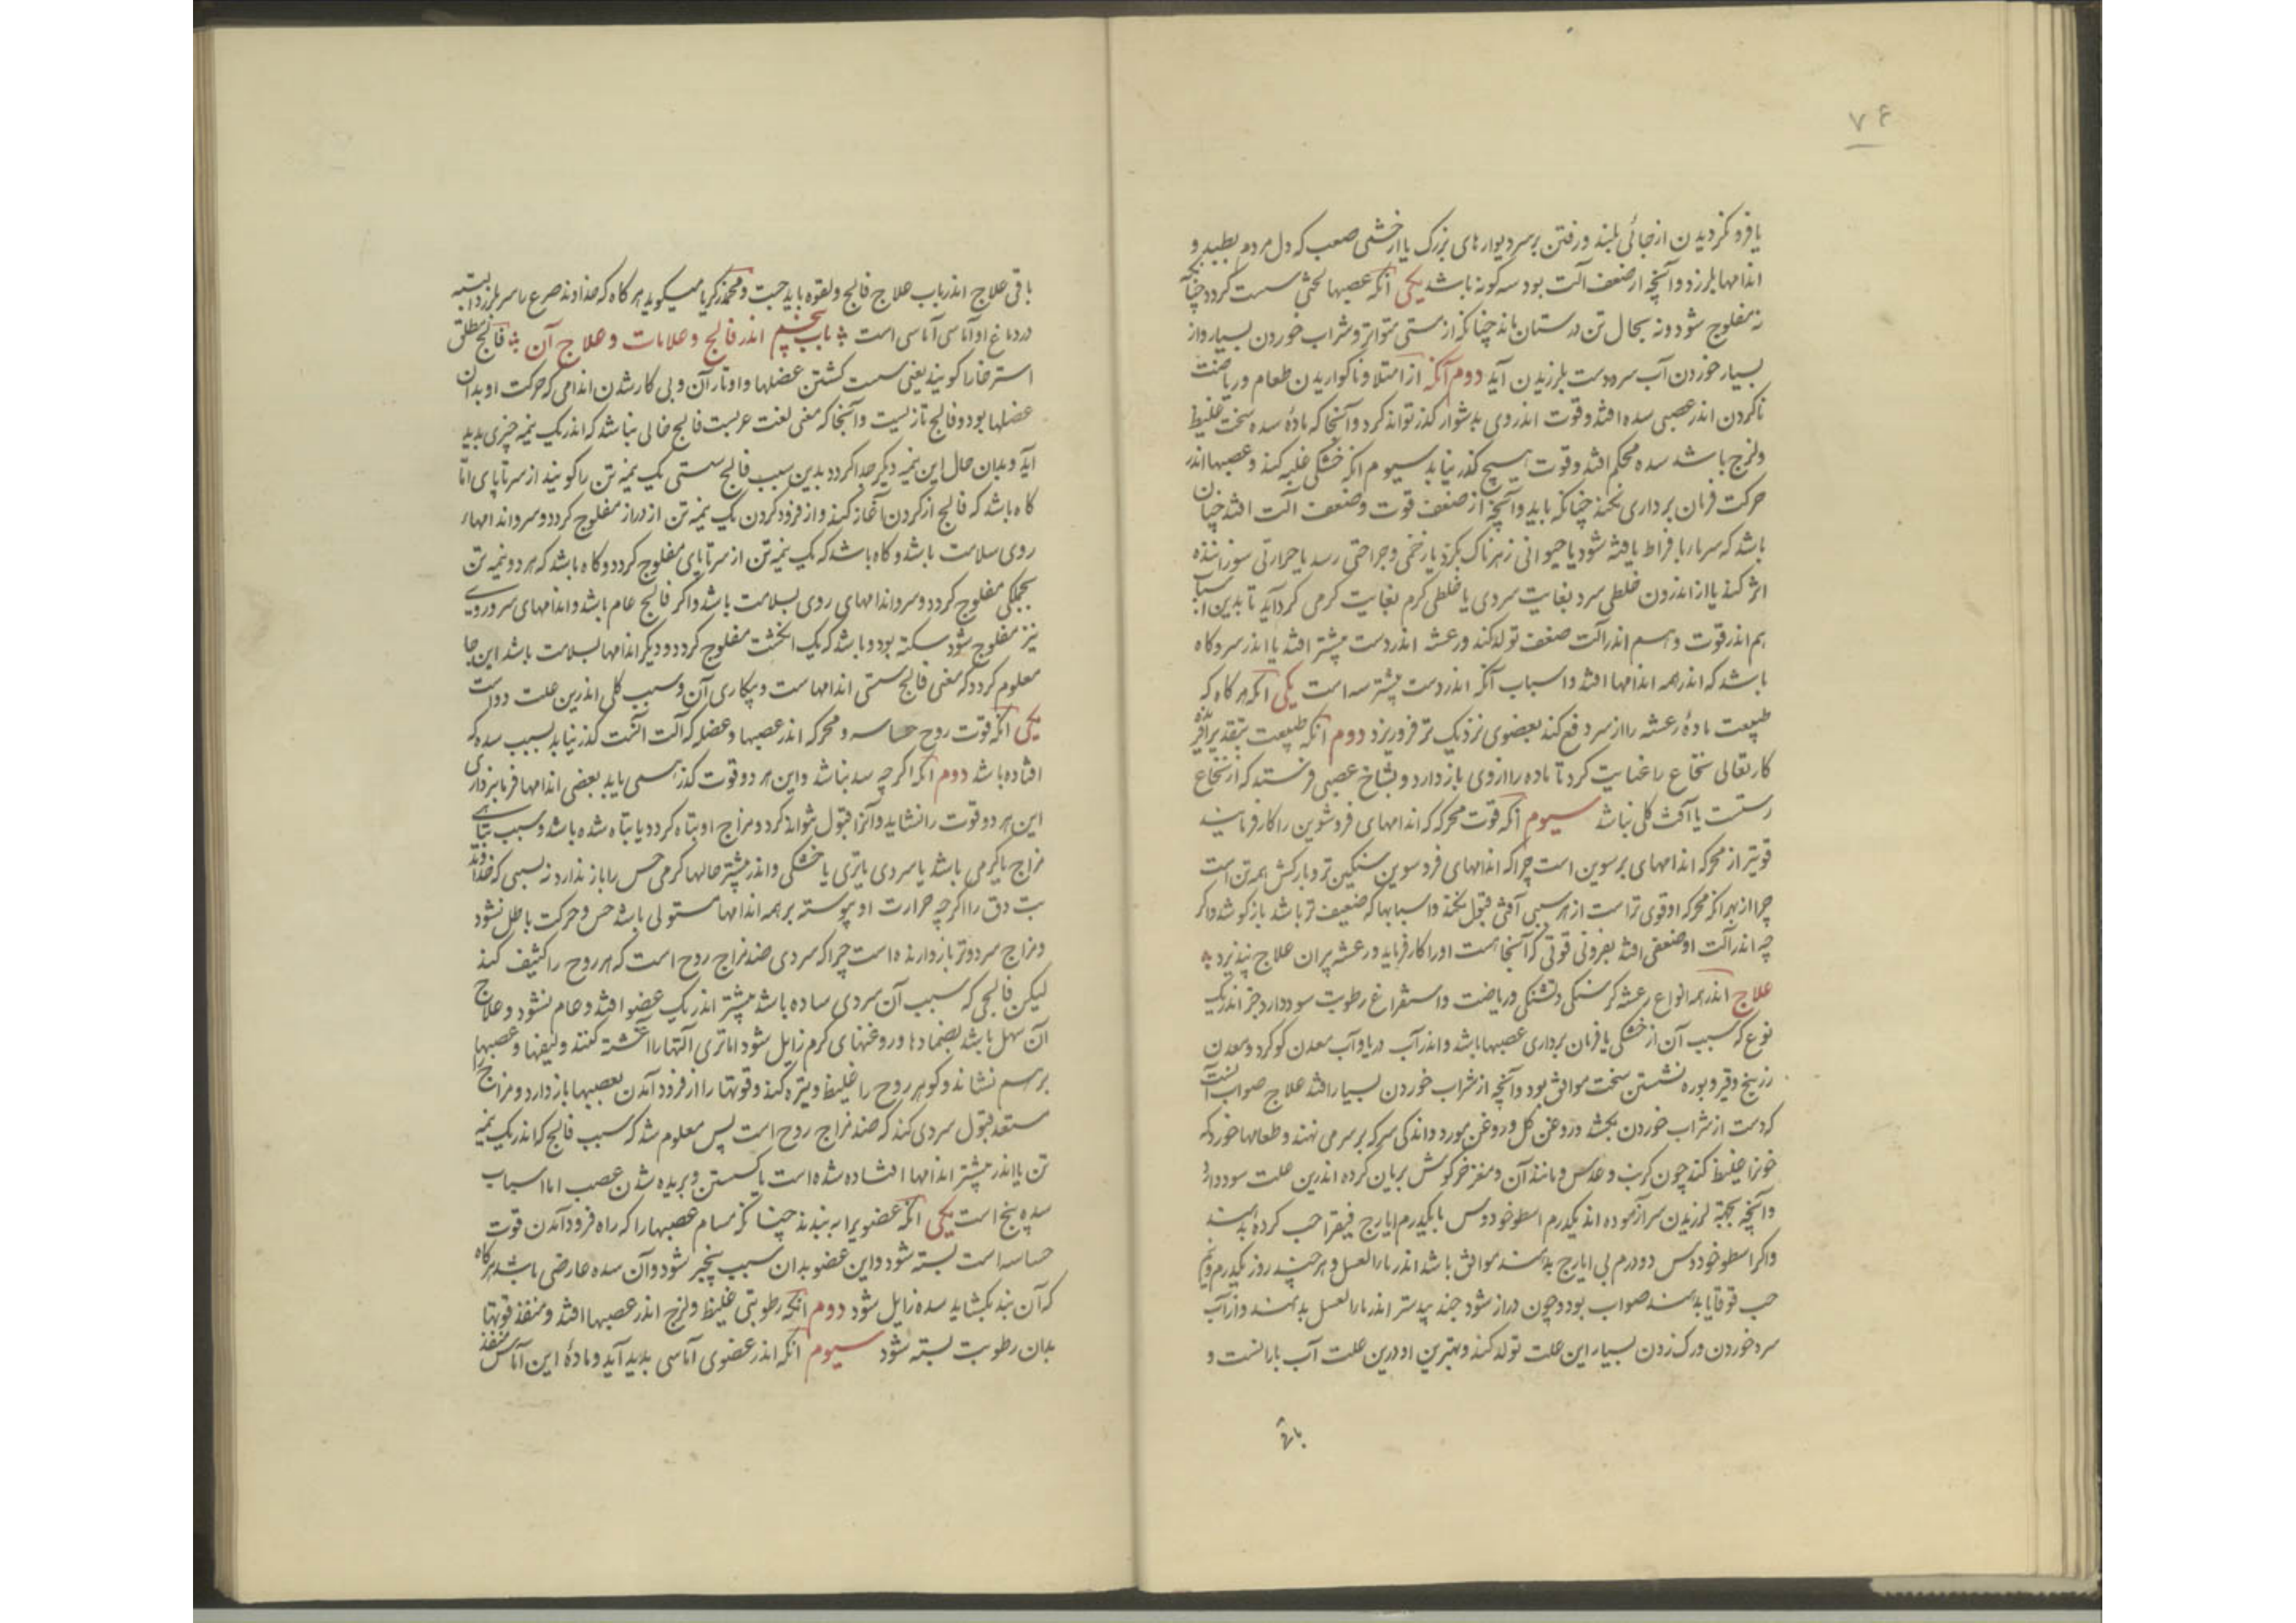 ۷۶
یا فرو نگردیدن از جائی بلند و رفتن بر سر دیوارهای بزرک یا از خشمی صعب که دل مردم بطپد و
اندامها بلرزد و آنچه از ضعف آلت بود سه کونه باشد یکی آنکه عصبها لختی سست کردد چنانکه
نه مفلوج شود و نه بحال تن درستان ماند چنانکه از مستی متواتر و شراب خوردن بسیار و از
بسیار خوردن آب سرد دست بلرزیدن آید دوم آنکه از امتلا و ناکواریدن طعام و ریاضت
ناکردن اندر عصبی سده افتد و قوت اندر وی بدشوار کذر تواند کرد و آنجا که مادۀ سده سخت غلیظ
و لزج باشد سده محکم افتد و قوت هیچ کذر نیابد سیوم انکه خشکی غلبه کند و عصبها اندر
حرکت فرمان برداری نکند چنانکه باید و آنچه از ضعف قوت و ضعف آلت افتد چنان
باشد که سرما بافراط یافته شود یا حیوانی زهرناک بکزد یا زخمی و جراحتی رسد یا حرارتی سوزاننده
اثر کند یا از اندرون خلطی سرد بغایت سردی یا خلطی کرم بغایت کرمی کرد آید تا بدین اسباب
هم اندر قوت و هم اندر آلت ضعف تولد کند و رعشه اندر دست بیشتر افتد یا اندر سر و کاه
باشد که اندر همه اندامها افتد و اسباب آنکه اندر دست بیشتر سه است یکی آنکه هر کاه که
طبیعت مادۀ رعشه را از سر دفع کند بعضوی نزدیک تر فرو ریزد دوم آنکه طبیعت بتقدیر آفریده
کار تعالی نخاع را عنایت کرد تا ماده را از وی باز دارد و بشاخ عصبی فرستد که از نخاع
رستست یا آفت کلی نباشد سیوم آنکه قوت محرکه که اندامهای فروسوین را کار فرمایند
قویتر از محرکه اندامهای برسوین است چرا که اندامهای فروسوین سنکین تر و بارکش همه تن است
چرا از بهر آنکه محرکه او قوی تر است از هر سببی آفتی قبول نکند و اسبابها که ضعیف تر باشد باز کوشد و اکر
چه اندر آلت او ضعفی افتد بفزونی قوتی که آنجا هست او را کار فرماید و رعشه پیران علاج نپذیرد
علاج اندر همه انواع رعشه کرسنکی و تشنکی و ریاضت و استفراغ رطوبت سود دارد جز اندر یک
نوع که سبب آن از خشکی یا فرمان برداری عصبها باشد و اندر آب دریا و آب معدن کوکرد و معدن
زرنیخ و قیر و بوره نشستن سخت موافق بود و آنچه از شراب خوردن بسیار افتد علاج صواب آنست
که دست از شراب خوردن بکشد و روغن کل و روغن مورد و اندکی سرکه بر سر می نهند و طعامها خورد که
خون را غلیظ کند چون کرنب و عدس و مانند آن و مغز خرکوش بریان کرده اندرین علت سود دارد
و آنچه بجهة لرزیدن سر آزموده اند یکدرم اسطوخودوس با یکدرم ایارج فیقرا حب کرده بدهند
و اکر اسطوخودوس دو درم بی ایارج بدهند موافق باشد اندر ماء العسل و هر چند روز یکدرم و نیم
حب قوقایا بدهند صواب بود و چون دراز شود جند بیدستر اندر ماء العسل بدهند و از آب
سرد خوردن و رک زدن بسیار این علت تولد کند و بهترین او درین علت آب بارانست و
باقی
باقی علاج اندر باب علاج فالج و لقوه باید جست و محمد زکریا میکوید هر کاه که خداوند صرع را سر بلرزد البته
در دماغ او آماسی آماسی است باب پنجم اندر فالج و علامات و علاج آن فالج مطلق
استرخا را کویند یعنی سست کشتن عضلها و اوتار آن و بی کار شدن اندامی که حرکت او بدان
عضلها بود و فالج تازیست و آنجا که معنی لغت عربست فالج خالی نباشد که اندر یک نیمه چیزی پدید
آید و بدان حال این نیمه دیکر جدا کردد بدین سبب فالج سستی یک نیمه تن را کویند از سر تا پای اما
کاه باشد که فالج از کردن آغاز کند و از فرود کردن یک نیمه تن از دراز مفلوج کردد و سر و اندامهاء
روی سلامت باشد و کاه باشد که یک نیمه تن از سر تا پای مفلوج کردد و کاه باشد که هر دو نیمه تن
بجملکی مفلوج کردد و سر و اندامهای روی بسلامت باشد و اکر فالج عام باشد و اندامهای سر و روی
نیز مفلوج شود سکته بود و باشد که یک انکشت مفلوج کردد و دیکر اندامها بسلامت باشد این جا
معلوم کردد که معنی فالج سستی اندامهاست و بیکاری آن و سبب کلی اندرین علت دو است
یکی آنکه قوت روح حساسه و محرکه اندر عصبها و عضله که آلت آنست کذر نیابد بسبب سده که
افتاده باشد دوم آنکه اکر چه سده نباشد و این هر دو قوت کذر همی یابد بعضی اندامها فرمانبرداری
این هر دو قوت را نشاید و آنرا قبول نتواند کرد و مزاج او تباه کردد یا تباه شده باشد و سبب تباهی
مزاج یا کرمی باشد یا سردی یا تری یا خشکی و اندر بیشتر حالها کرمی حس را باز ندارد نه بینی که خداوند
تب دق را اکر چه حرارت او پیوسته بر همه اندامها مستولی باشد حس و حرکت باطل نشود
و مزاج سرد و تر باز دارنده است چرا که سردی ضد مزاج روح است که هر روح را کثیف کند
لیکن فالجی که سبب آن سردی ساده باشد بیشتر اندر یک عضو افتد و عام نشود و علاج
آن سهل باشد بضمادها و روغنهای کرم زایل شود اما تری آلتها را آغشته کنند و لیفها و عصبها را
بر هم نشاند و کوهر روح را غلیظ و تیره کند و قوتها را از فرود آمدن بعصبها باز دارد و مزاج
مستعد قبول سردی کند که ضد مزاج روح است پس معلوم شد که سبب فالج که اندر یک نیمه
تن یا اندر بیشتر اندامها افتد سده شده است یا کسستن و بریده شدن عصب اما اسباب
سده پنج است یکی آنکه عضو برا ببندند چنانکه مسام عصبها را که راه فرود آمدن قوت
حساسه است بسته شود و این عضو بدان سبب بیخبر شود و آن سده عارضی باشد هر کاه
که آن بند بکشاید سده زایل شود دوم انکه رطوبتی غلیظ و لزج اندر عصبها افتد و منفذ قوتها
بدان رطوبت بسته شود سیوم آنکه اندر عضوی آماسی پدید آید و مادۀ این آماس منفذ